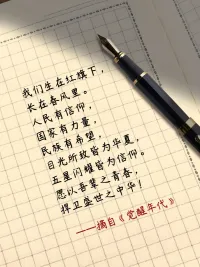 我们生在红旗下，
长在春风里。
人民有信仰，
国家有力量，
民族有希望，
目光所致皆为华夏，
五星闪耀皆为信仰。
愿以吾辈之青春，
捍卫盛世之中华！
——摘自《觉醒年代》